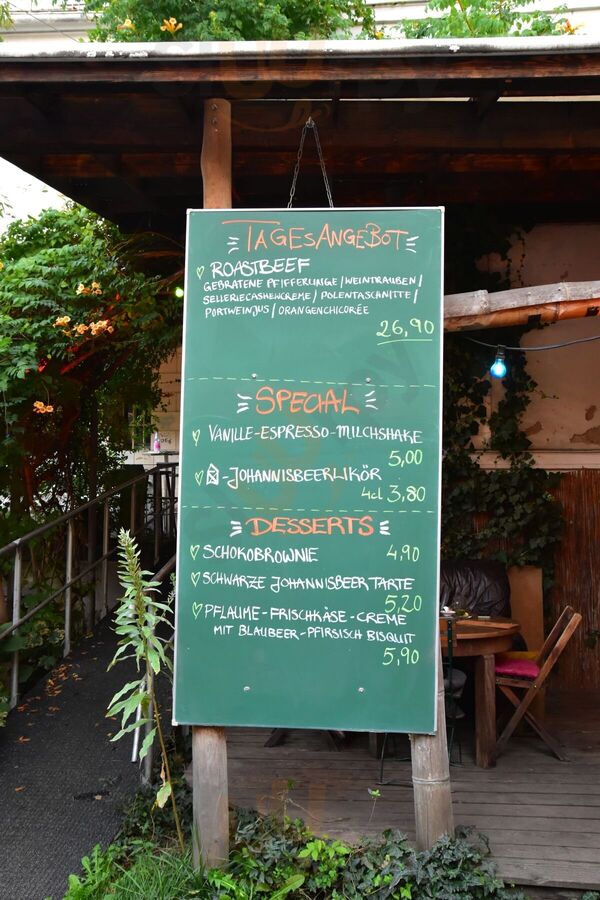 TAGESANGEBOT
ROASTBEEF
GEBRATENE PFIFFERLINGE / WEINTRAUBEN /
SELLERIECASHEWCREME / POLENTASCHNITTE /
PORTWEINJUS / ORANGENCHICORÉE
26,90
SPECIAL
VANILLE-ESPRESSO-MILCHSHAKE
5,00
-JOHANNISBEERLIKÖR
4cl 3,80
DESSERTS
SCHOKOBROWNIE 4,90
SCHWARZE JOHANNISBEER TARTE
5,20
PFLAUME-FRISCHKÄSE-CREME
MIT BLAUBEER-PFIRSICH BISQUIT
5,90